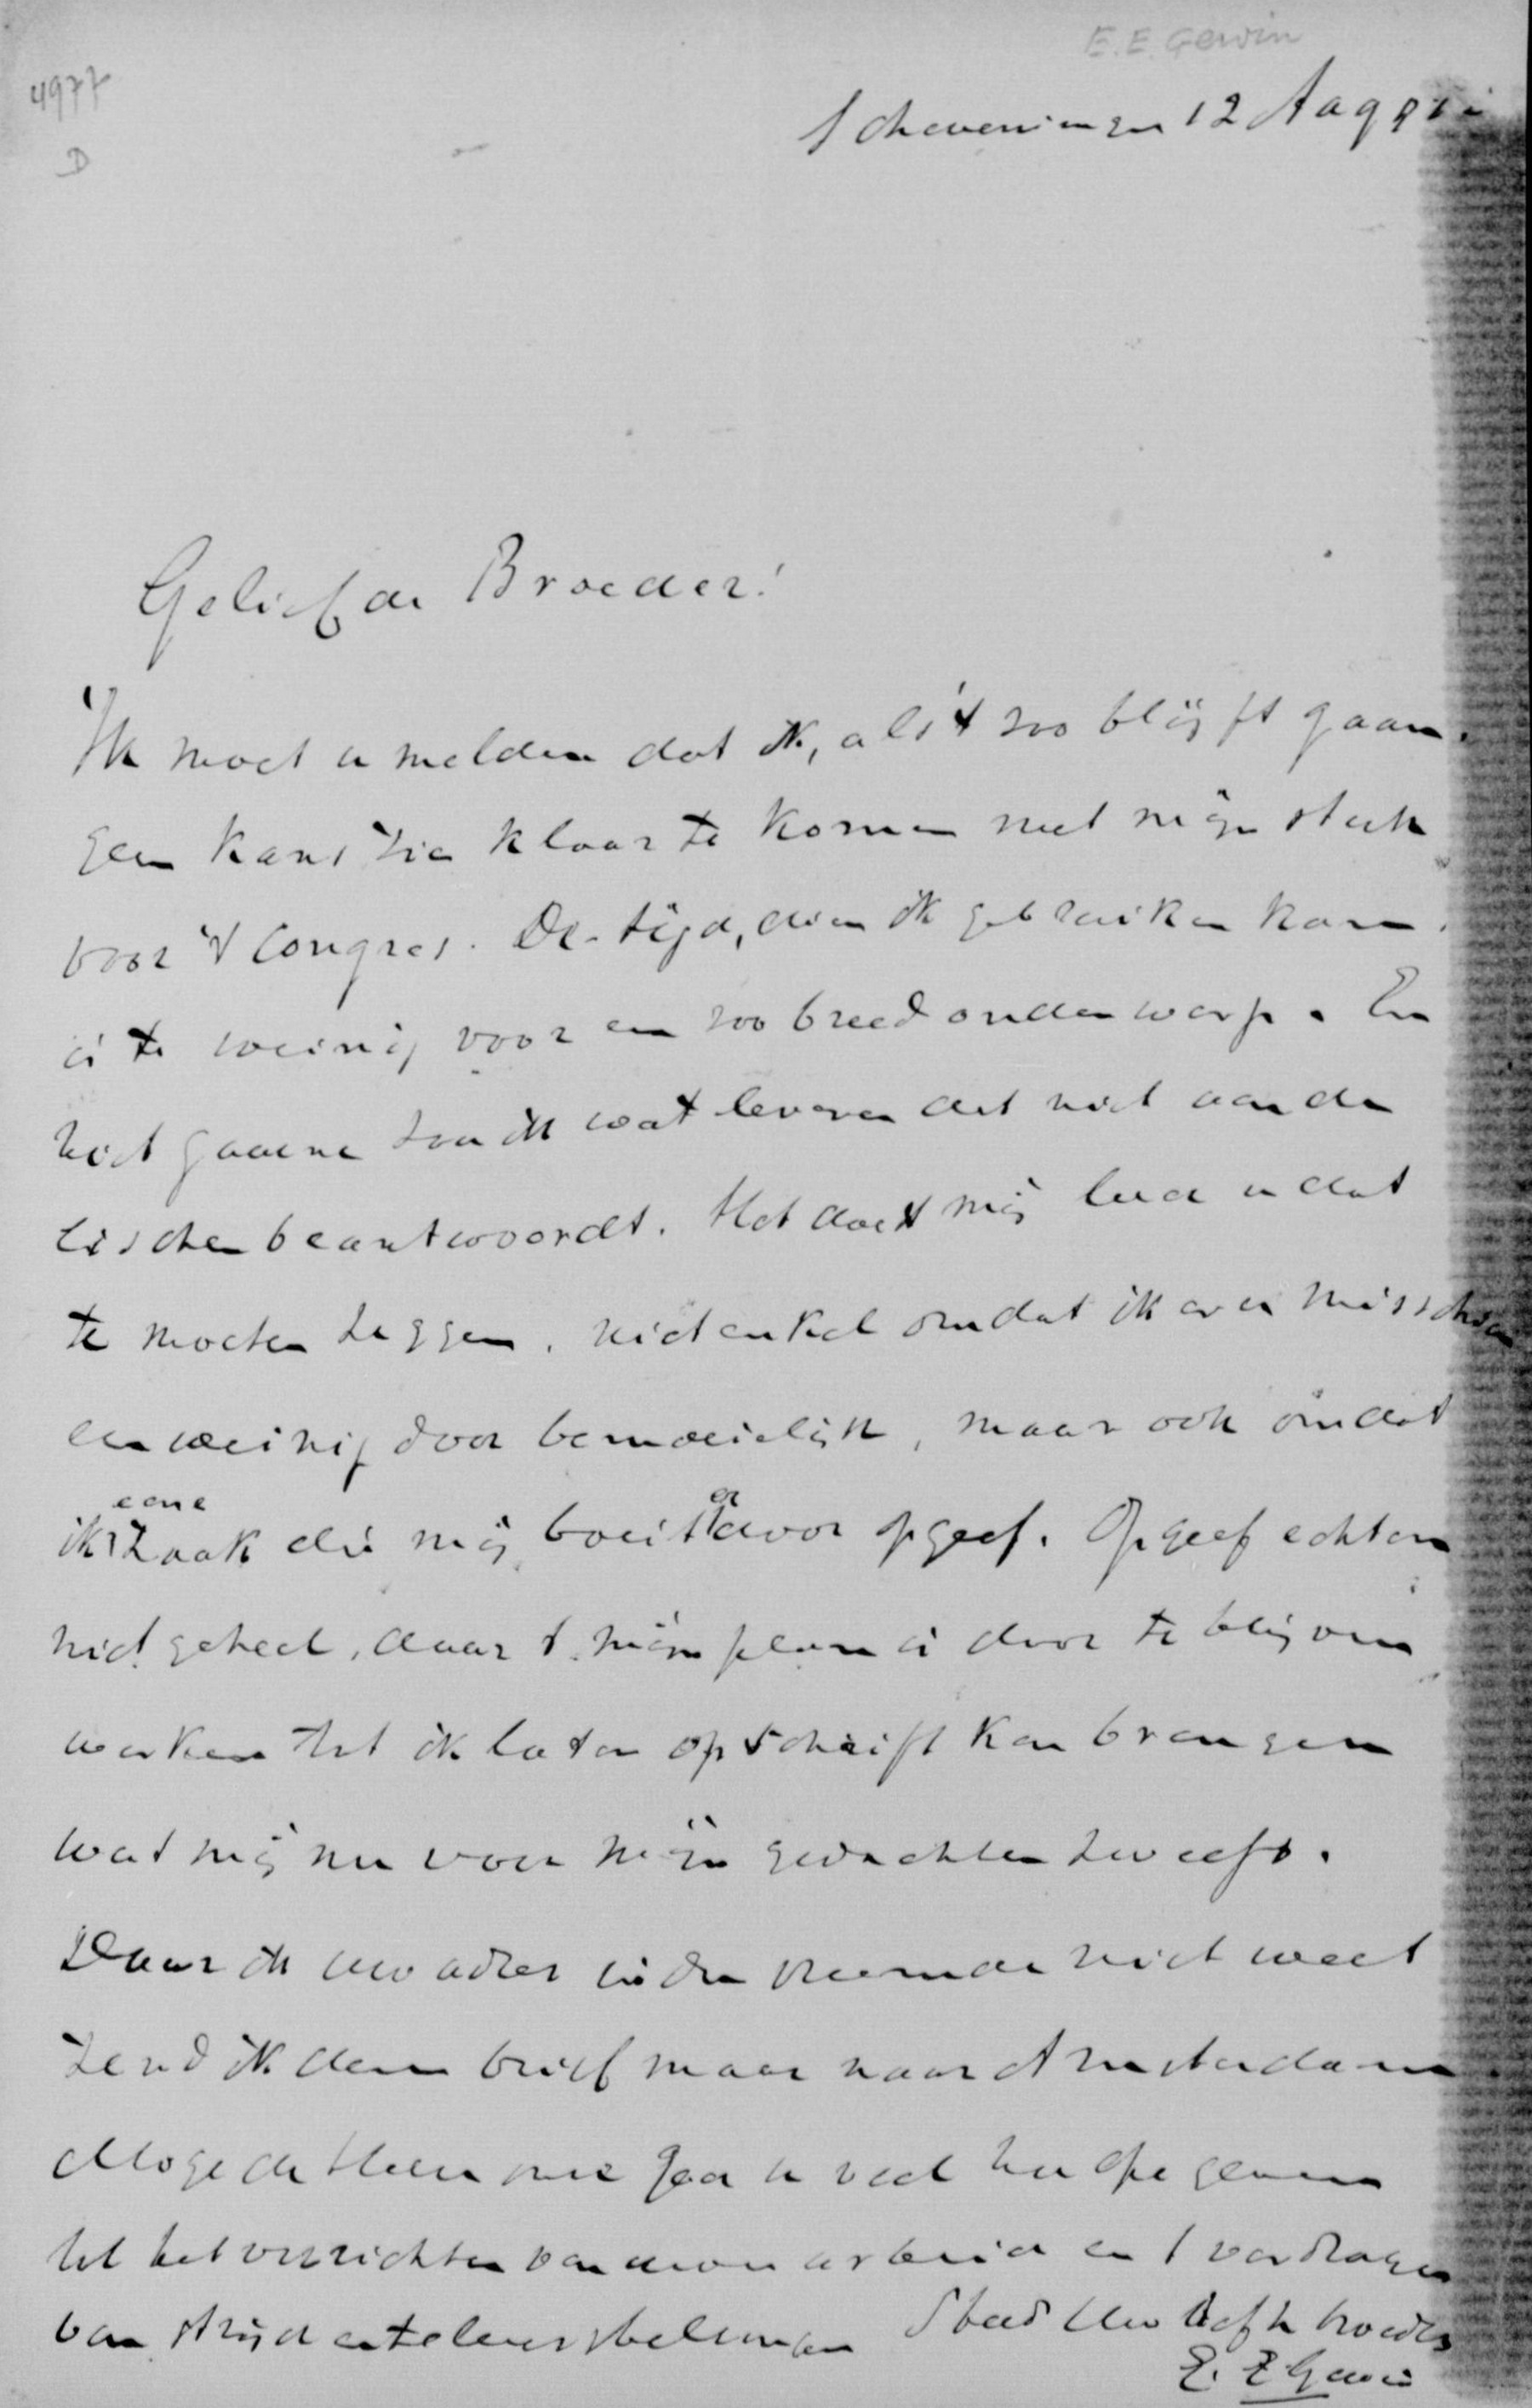 E. E. Gewin
4977
D
Scheveningen 12 Aug 91
Geliefde Broeder!
Ik moet u melden dat ik, als 't zoo blijft gaan,
geen kans zie klaar te komen met mijn stuk
voor 't Congres. De tijd, dien ik gebruiken kan,
is te weinig voor een zoo breed onderwerp. En
niet gaarne zou ik wat leveren dat niet aan de
eischen beantwoordt. Het doet mij leed u dat
te moeten zeggen, niet enkel omdat ik er u misschien
een weinig door bemoeielijk, maar ook omdat
ik eene zaak die mij boeit er door opgeef. Opgeef echter
niet geheel, daar 't mijn plan is door te blijven
werken tot ik later op schrift kan brengen
wat mij nu voor mijn gedachten zweeft.
Daar ik uw adres in den vreemde niet weet
zend ik dezen brief maar naar Amsterdam
Moge de Heer onze God u veel hulpe geven
tot het verrichten van uwen arbeid en 't verdragen
van strijd en teleurstellingen Steeds Uw liefh broeder
E. E Gewin